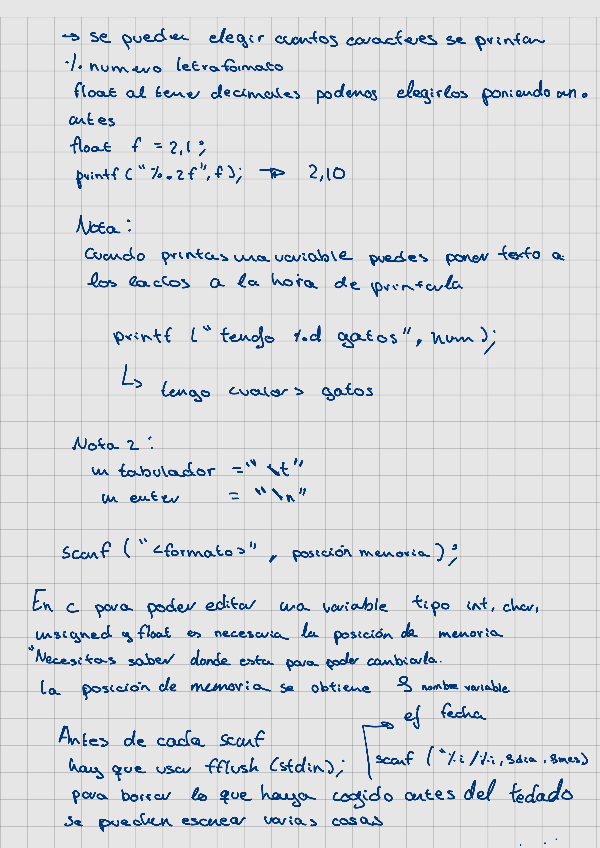 → se pueden elegir cuantos caracteres se printan
% numero letraformato
float al tener decimales podemos elegirlos poniendo un .
antes
float f = 2,1;
printf("%.2f",f); → 2,10
Nota:
Cuando printas una variable puedes poner texto a
los lados a la hora de printarla
printf ("tengo %d gatos", num);
↳ tengo <valor> gatos
Nota 2:
un tabulador = "\t"
un enter = "\n"
scanf ("<formato>", posición memoria);
En c para poder editar una variable tipo int, char,
unsigned y float es necesaria la posición de memoria
"Necesitas saber donde esta para poder cambiarla.
la posición de memoria se obtiene & nombre variable
ej fecha
Antes de cada scanf
scanf ("%i/%i, &dia, &mes)
hay que usar fflush (stdin);
para borrar lo que haya cogido antes del teclado
se pueden escanear varias cosas